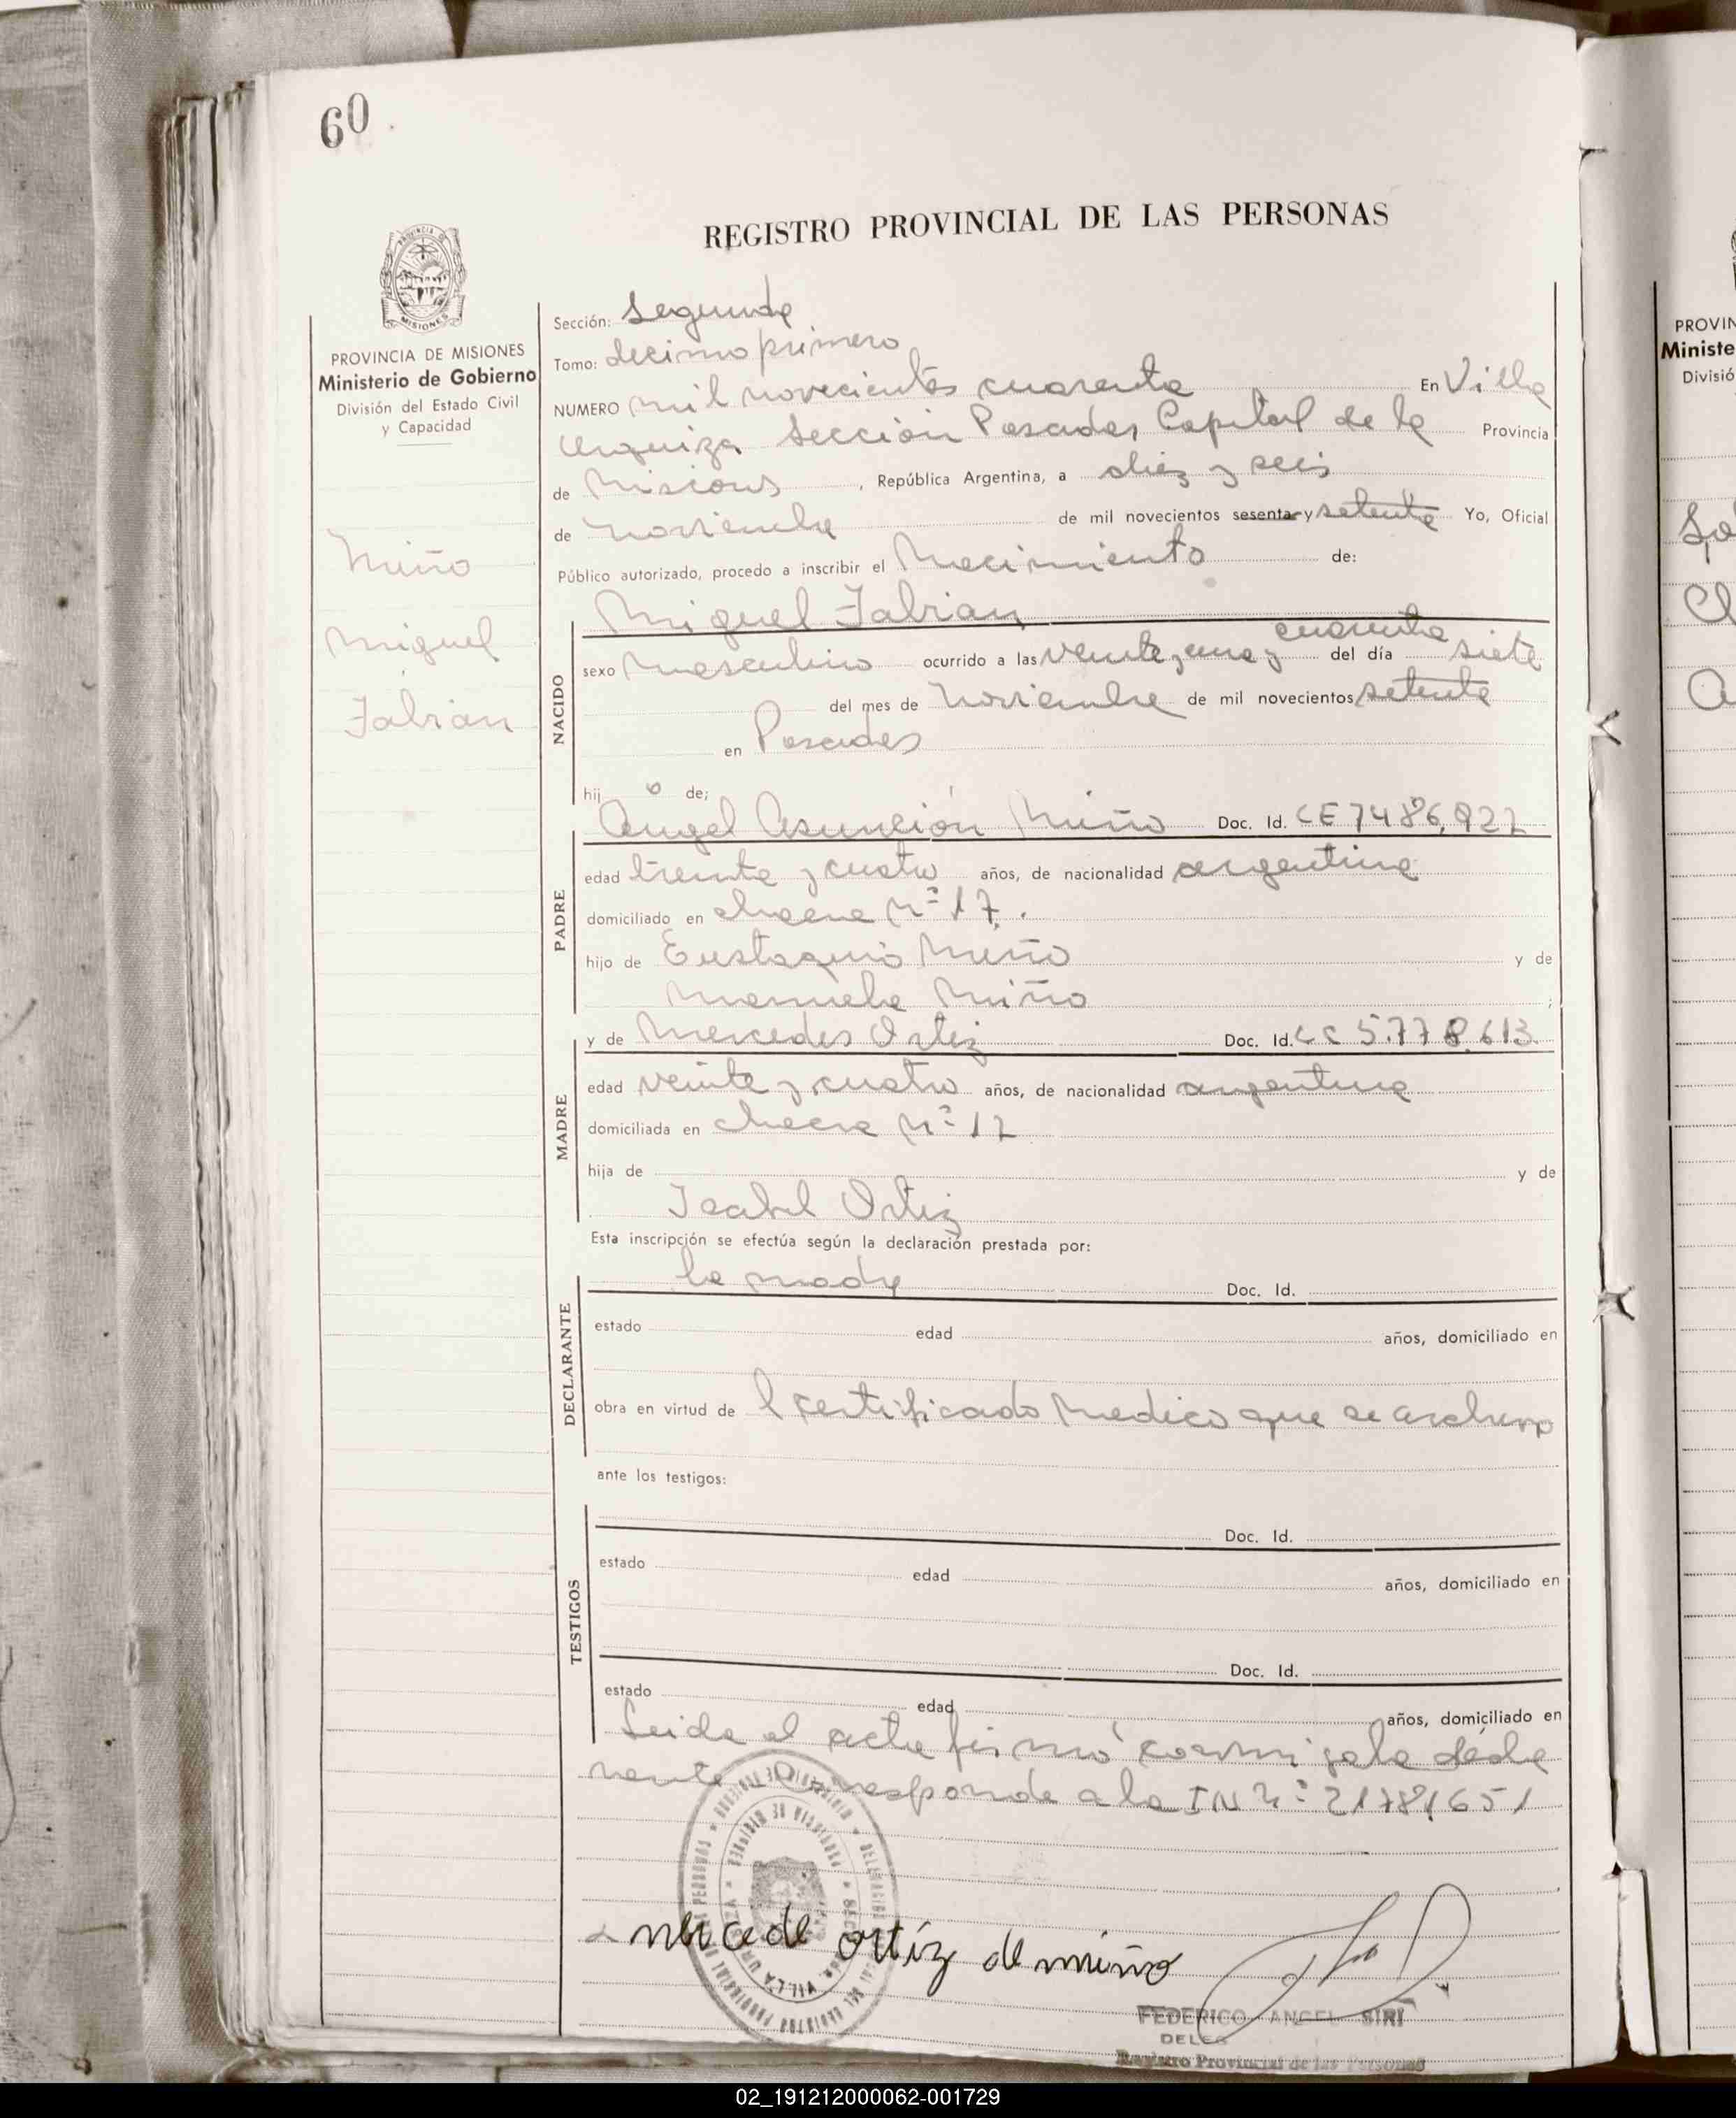 60
REGISTRO PROVINCIAL DE LAS PERSONAS
PROVINCIA DE MISIONES
Ministerio de Gobierno
División del Estado Civil
y Capacidad
Miño
Miguel
Fabian
Sección: Segunda
Tomo: decimo primero
NUMERO mil novecientos cuarenta En Villa
Urquiza Sección Posadas Capital de la Provincia
de Misiones, República Argentina, a diez y seis
de noviembre de mil novecientos sesenta y setenta Yo, Oficial
Público autorizado, procedo a inscribir el Nacimiento de:
Miguel Fabian
cuarenta
NACIDO
sexo masculino ocurrido a las veinte y una y del día siete
del mes de noviembre de mil novecientos setenta
en Posadas
hij o de;
Angel Asunción Miño Doc. Id. CE 7486,922
PADRE
edad treinta y cuatro años, de nacionalidad argentina
domiciliado en chacra Nº 17.
hijo de Eustaquio Miño y de
Manuela Miño ;
y de Mercedes Ortiz Doc. Id. LC 5.778.613
MADRE
edad veinte y cuatro años, de nacionalidad argentina
domiciliada en chacra Nº 17
hija de y de
Isabel Ortiz
Esta inscripción se efectúa según la declaración prestada por:
la madre Doc. Id.
DECLARANTE
estado edad años, domiciliado en
obra en virtud de l certificado medico que se archivo
ante los testigos:
Doc. Id.
TESTIGOS
estado edad años, domiciliado en
Doc. Id.
estado edad años, domiciliado en
Leida el acta firmó conmigo la decla
rante Corresponde a la IN Nº 21781651
mercede ortíz de miño
FEDERICO ANGEL SIRI
DELEG
Registro Provincial de las Personas
PROVIN
Ministe
Divisió
02_191212000062-001729